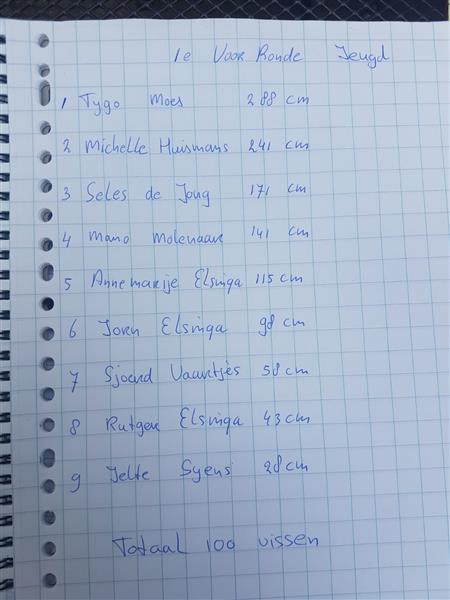 1e Voor Ronde Jeugd
1 Tygo Moes 288 cm
2 Michelle Huismans 241 cm
3 Seles de Jong 171 cm
4 Mano Molenaar 141 cm
5 Annemarije Elsinga 115 cm
6 Jorn Elsinga 98 cm
7 Sjoerd Vaartjes 58 cm
8 Rutger Elsinga 43 cm
9 Jelte Syens 28 cm
Totaal 100 vissen